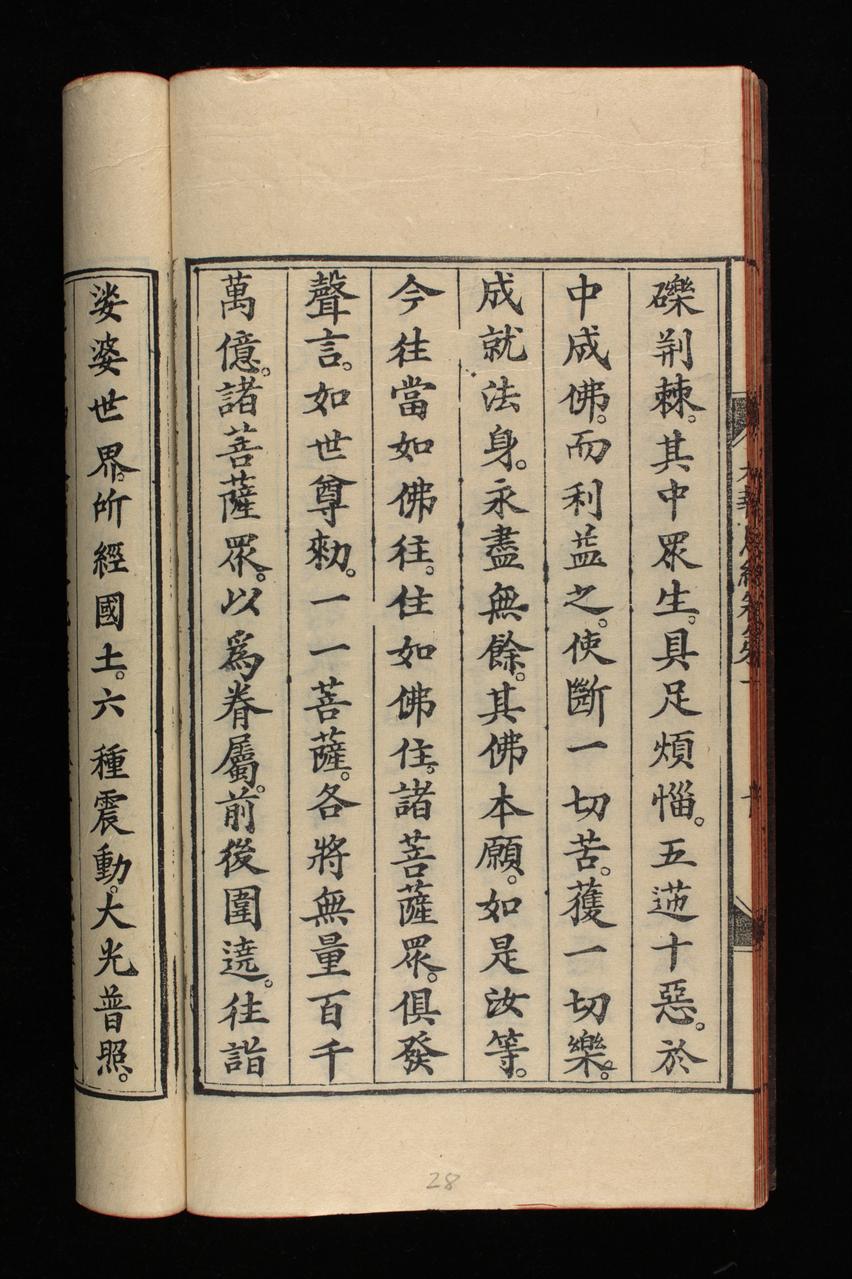 礫荆棘。其中眾生。具足煩惱。五逆十惡。於
中成佛。而利益之。使斷一切苦。獲一切樂。
成就法身。永盡無餘。其佛本願。如是汝等。
今往當如佛往。住如佛住。諸菩薩眾。俱發
聲言。如世尊勑。一一菩薩。各將無量百千
萬億。諸菩薩眾。以爲眷屬。前後圍遶。往詣
娑婆世界。所經國土。六種震動。大光普照。
28